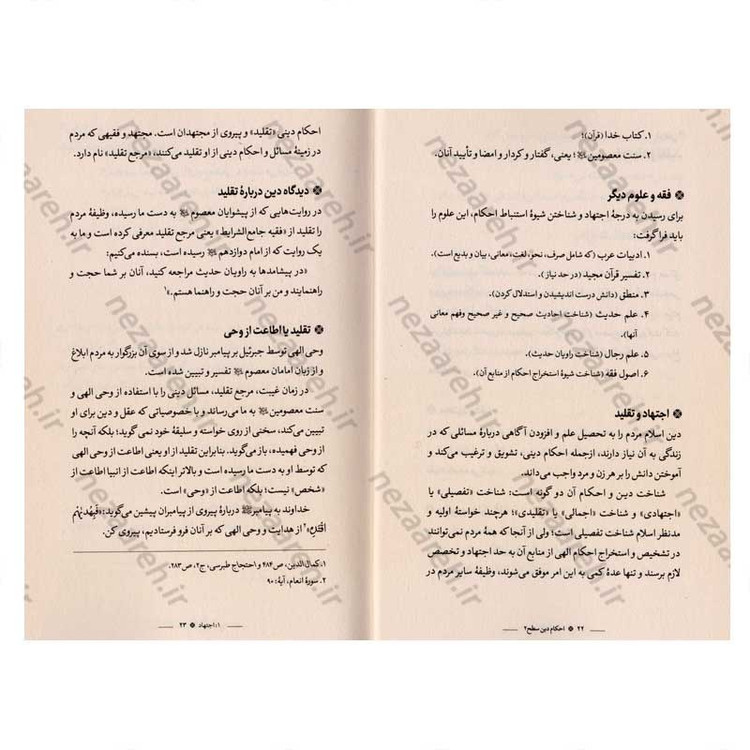 ۱. کتاب خدا (قرآن)؛
۲. سنت معصومین ﷺ؛ یعنی، گفتار و کردار و امضا و تأیید آنان.
فقه و علوم دیگر
برای رسیدن به درجهٔ اجتهاد و شناختن شیوهٔ استنباط احکام، این علوم را
باید فرا گرفت:
۱. ادبیات عرب (که شامل صرف، نحو، لغت، معانی، بیان و بدیع است).
۲. تفسیر قرآن مجید (در حد نیاز).
۳. منطق (دانش درست اندیشیدن و استدلال کردن).
۴. علم حدیث (شناخت احادیث صحیح و غیر صحیح وفهم معانی
آنها).
۵. علم رجال (شناخت راویان حدیث).
۶. اصول فقه (شناخت شیوهٔ استخراج احکام از منابع آن).
اجتهاد و تقلید
دین اسلام مردم را به تحصیل علم و افزودن آگاهی دربارهٔ مسائلی که در
زندگی به آن نیاز دارند، ازجمله احکام دینی، تشویق و ترغیب می‌کند و
آموختن دانش را بر هر زن و مرد واجب می‌داند.
شناخت دین و احکام آن دو گونه است: شناخت «تفصیلی» یا
«اجتهادی» و شناخت «اجمالی» یا «تقلیدی»؛ هرچند خواستهٔ اولیه و
مدنظر اسلام شناخت تفصیلی است؛ ولی از آنجا که همهٔ مردم نمی‌توانند
در تشخیص و استخراج احکام الهی از منابع آن به حد اجتهاد و تخصص
لازم برسند و تنها عدهٔ کمی به این امر موفق می‌شوند، وظیفهٔ سایر مردم در
۲۲ احکام دین سطح ۲
احکام دینی «تقلید» و پیروی از مجتهدان است. مجتهد و فقیهی که مردم
در زمینهٔ مسائل و احکام دینی از او تقلید می‌کنند، «مرجع تقلید» نام دارد.
دیدگاه دین دربارهٔ تقلید
در روایت‌هایی که از پیشوایان معصوم ﷺ به دست ما رسیده، وظیفهٔ مردم
را تقلید از «فقیه جامع‌الشرایط» یعنی مرجع تقلید معرفی کرده است و ما به
یک روایت که از امام دوازدهم ﷺ رسیده است، بسنده می‌کنیم:
«در پیشامدها به راویان حدیث مراجعه کنید، آنان بر شما حجت و
راهنمایند و من بر آنان حجت و راهنما هستم.»۱
تقلید یا اطاعت از وحی
وحی الهی توسط جبرئیل بر پیامبر نازل شد و از سوی آن بزرگوار به مردم ابلاغ
و از زبان امامان معصوم ﷺ تفسیر و تبیین شده است.
در زمان غیبت، مرجع تقلید، مسائل دینی را با استفاده از وحی الهی و
سنت معصومین ﷺ به ما می‌رساند و با خصوصیاتی که عقل و دین برای او
تبیین می‌کند، سخنی از روی خواسته و سلیقهٔ خود نمی گوید؛ بلکه آنچه را
از وحی فهمیده، باز می‌گوید. بنابراین تقلید از او یعنی اطاعت از وحی الهی
که توسط او به دست ما رسیده است و بالاتر اینکه اطاعت از انبیا اطاعت از
«شخص» نیست؛ بلکه اطاعت از «وحی» است.
خداوند به پیامبر ﷺ دربارهٔ پیروی از پیامبران پیشین می‌گوید: «فَبِهُدٰیهُمُ
اقْتَدِهْ»۲ از هدایت و وحی الهی که بر آنان فرو فرستادیم، پیروی کن.
۱. کمال‌الدین، ص ۴۸۴ و احتجاج طبرسی، ج۲، ص ۲۸۳.
۲. سورهٔ انعام، آیهٔ: ۹۰
۱: اجتهاد ۲۳
nezaareh.ir